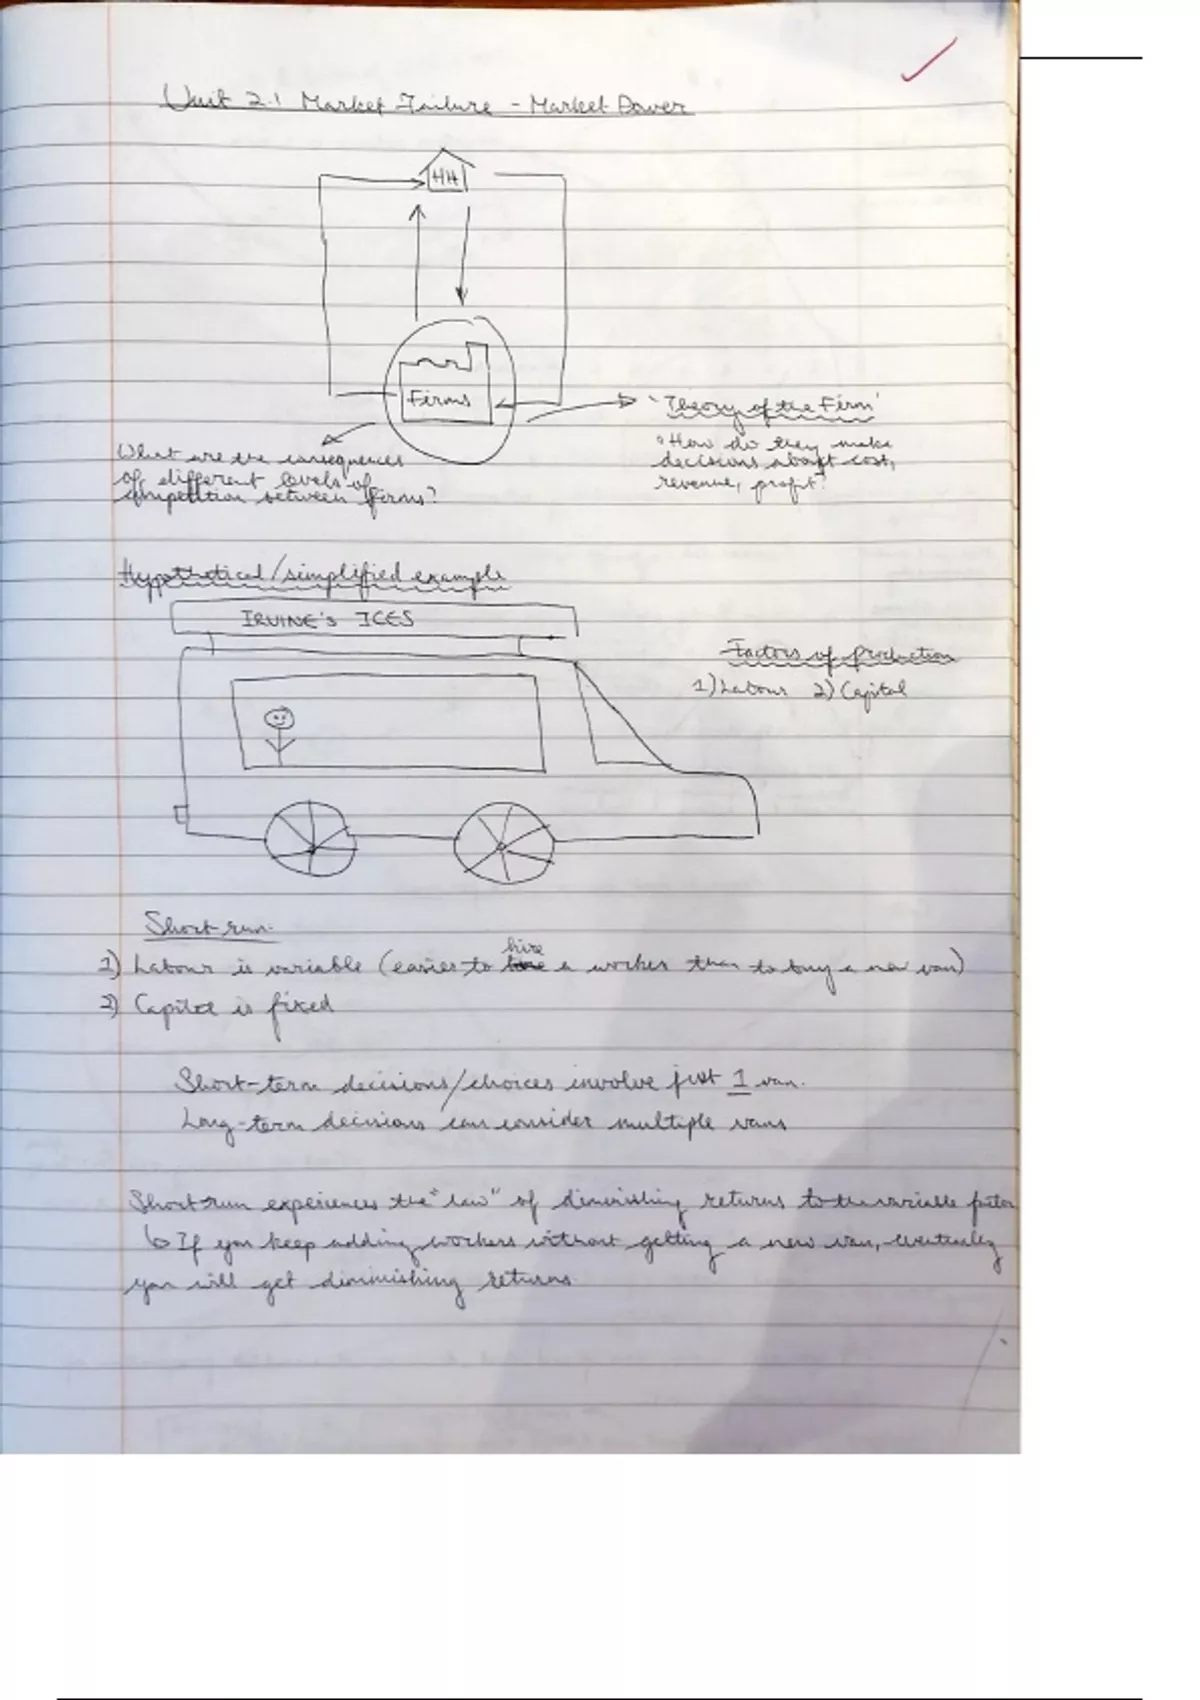 Unit 2.1 Market Failure - Market Power
HH
Firms
'Theory of the Firm'
How do they make
decisions about cost,
revenue, profit?
What are the consequences
of different levels of
competition between firms?
Hypothetical/simplified example
IRVINE's ICES
Factors of production
1) Labour 2) Capital
Short run
hire
1) Labour is variable (easier to a worker than to buy a new van)
2) Capital is fixed
Short-term decisions/choices involve just 1 van.
Long-term decisions can consider multiple vans
Short run experiences the "law" of diminishing returns to the variable factor
↳ If you keep adding workers without getting a new van, eventually
you will get diminishing returns.